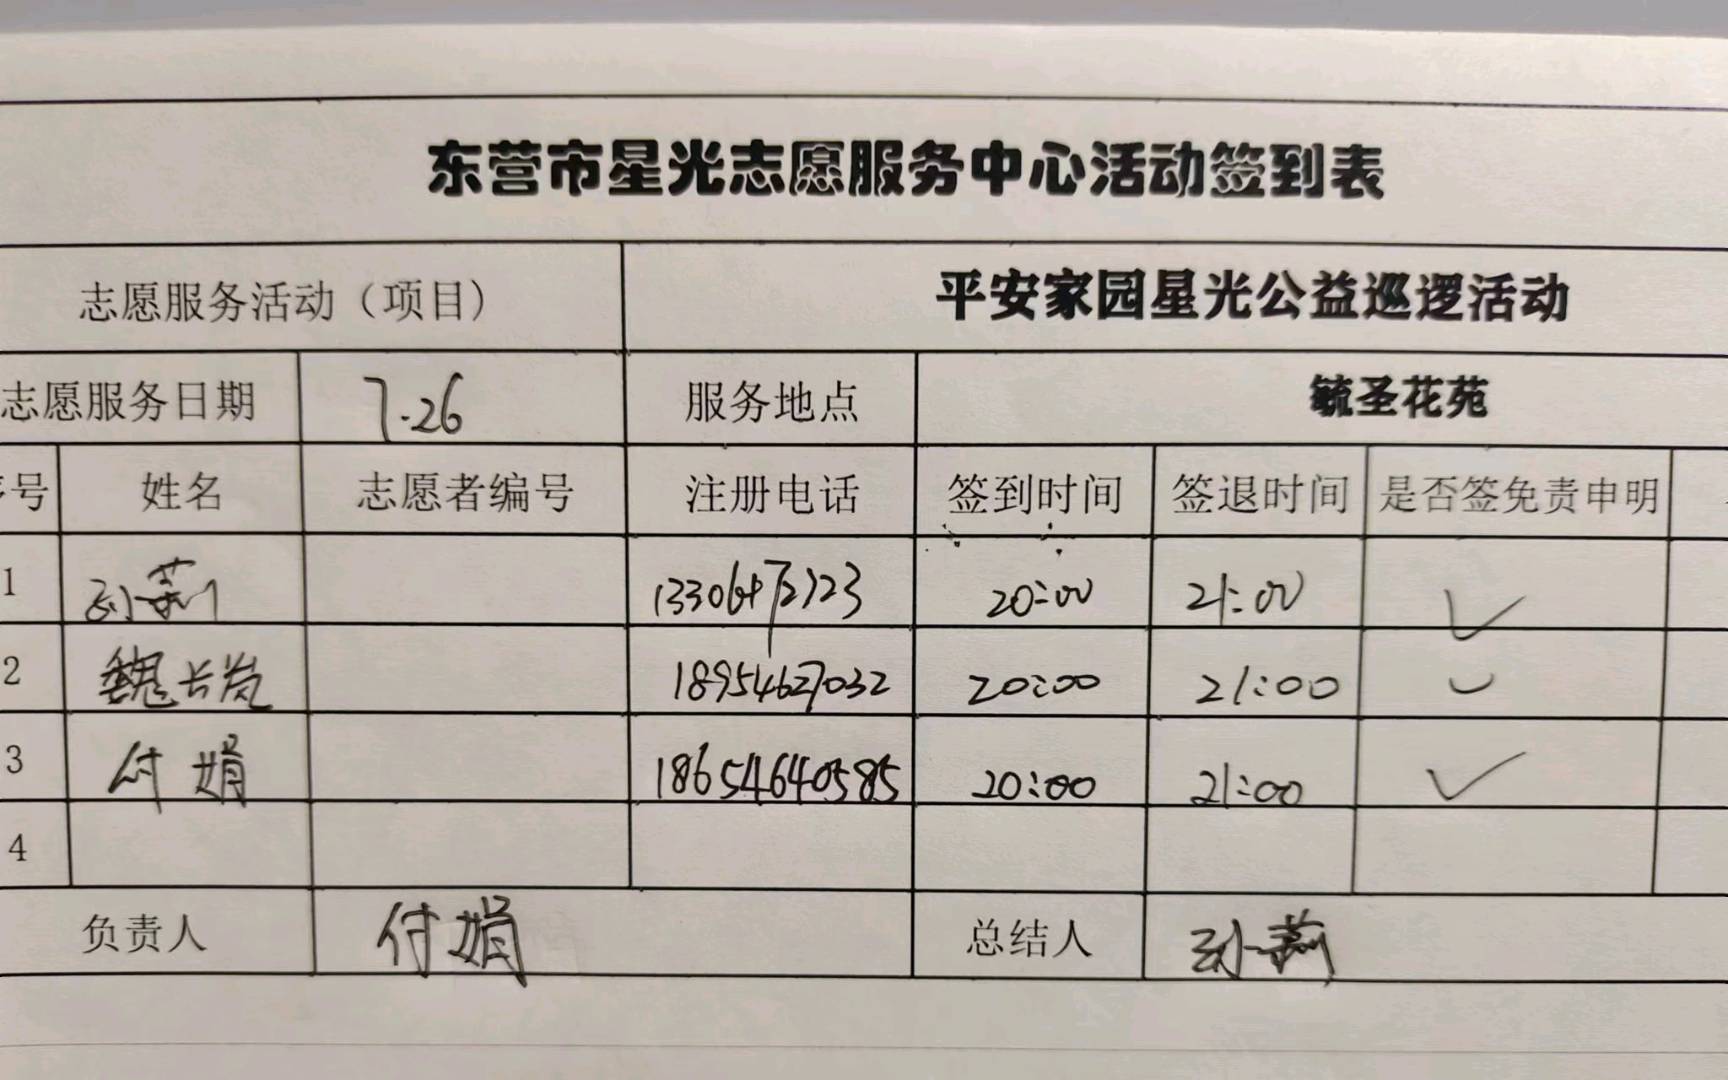 东营市星光志愿服务中心活动签到表
志愿服务活动（项目） 平安家园星光公益巡逻活动
志愿服务日期 7.26 服务地点 毓圣花苑
号 姓名 志愿者编号 注册电话 签到时间 签退时间 是否签免责申明
1 孙莉 13306472123 20:00 21:00 ✓
2 魏长岚 18954627032 20:00 21:00 ✓
3 付娟 18654640585 20:00 21:00 ✓
4
负责人 付娟 总结人 孙莉